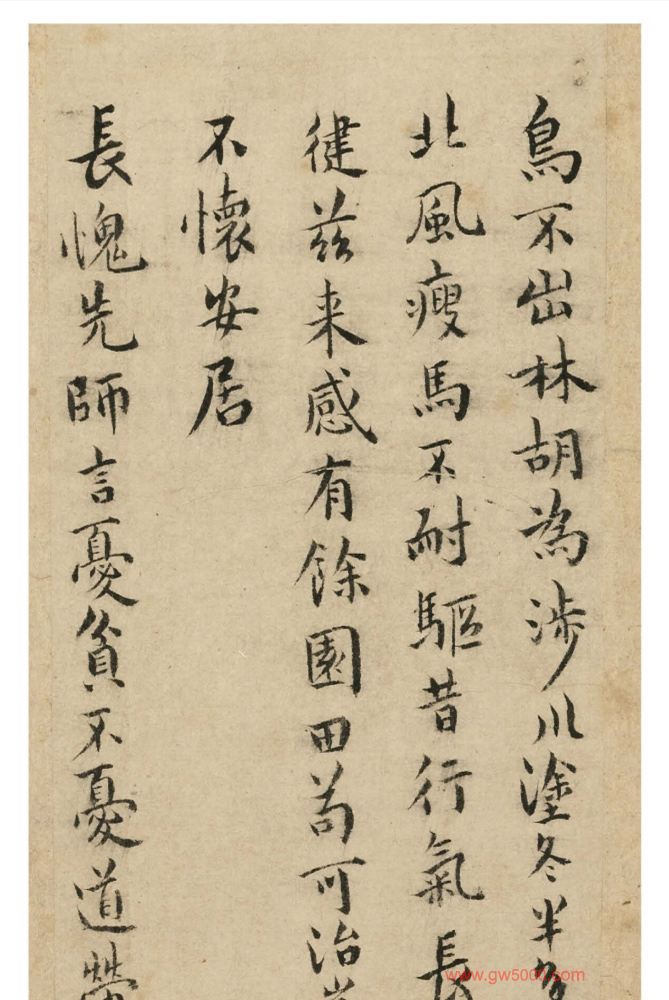 鳥不出林胡為涉川塗冬半多
北風瘦馬不耐驅昔行氣長
健茲来感有餘園田苟可治豈
不懷安居
長愧先師言憂貧不憂道勞
www.gw5000.com